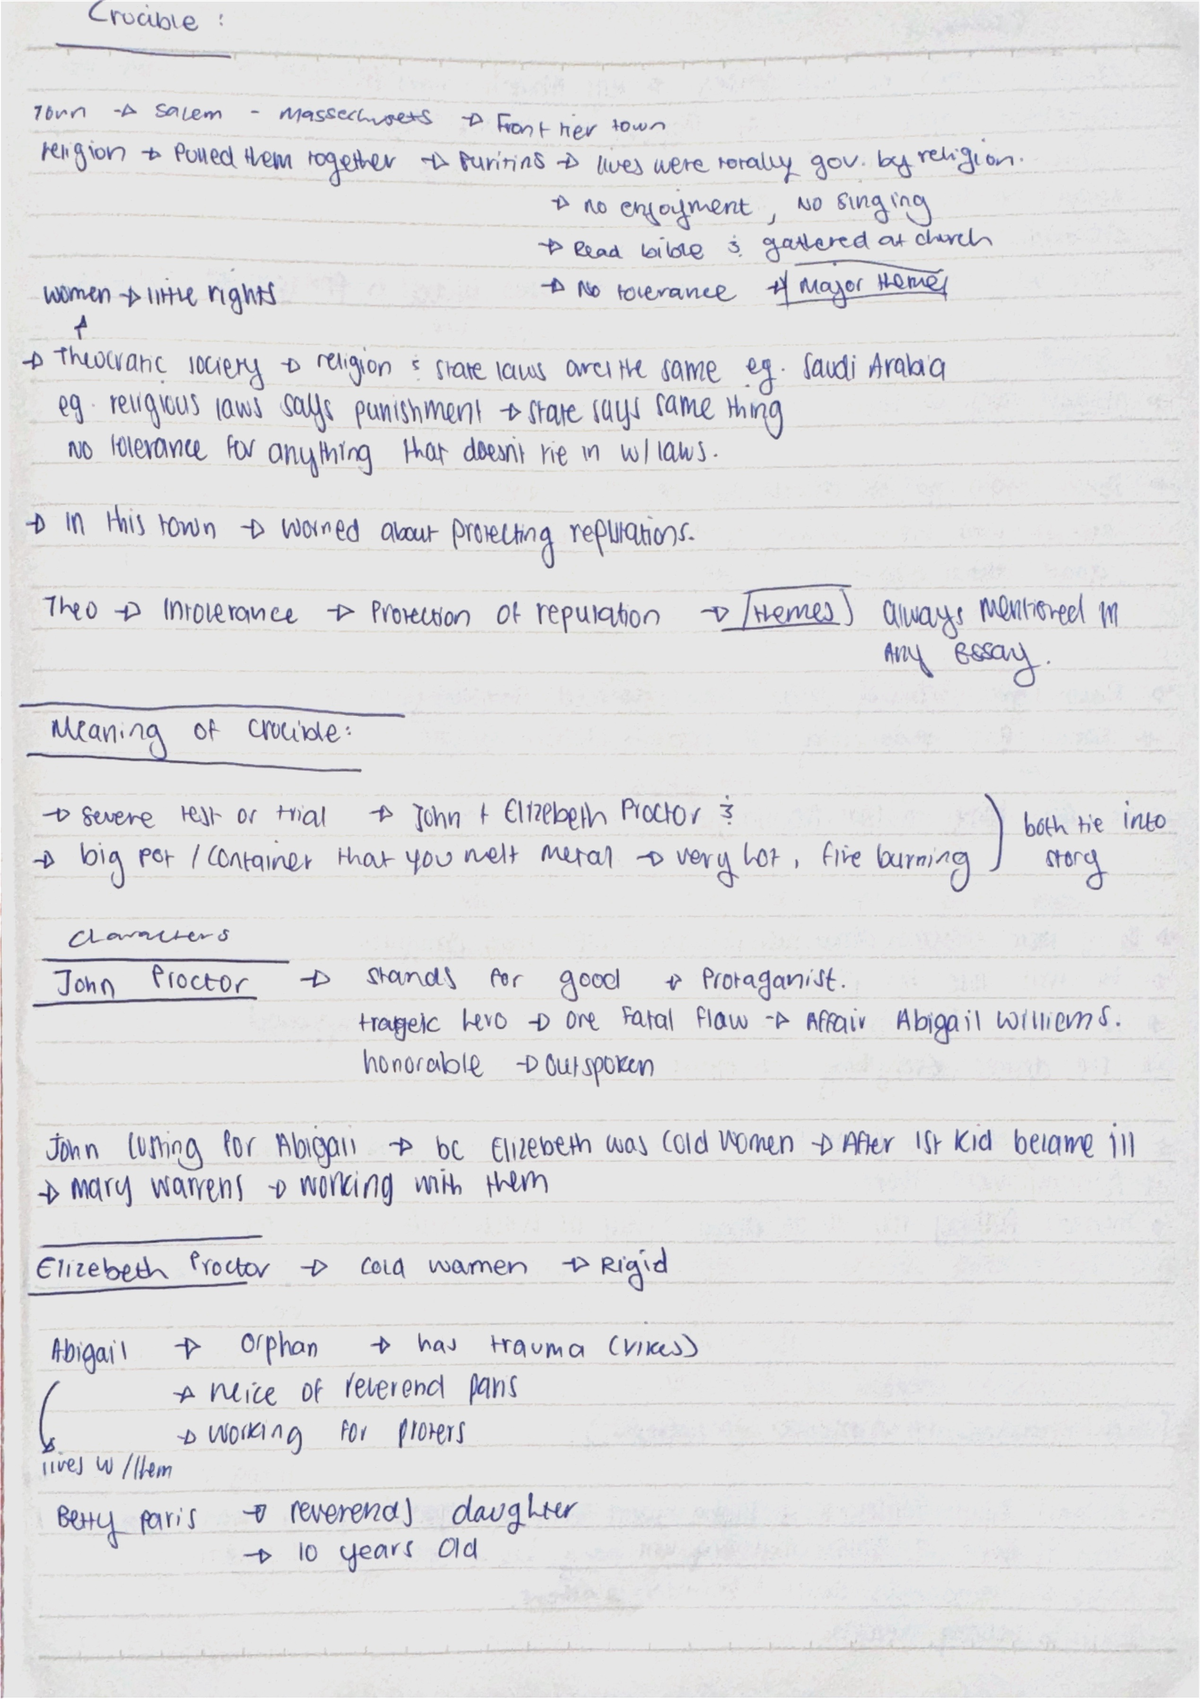 Crucible :
Town → Salem - Massechusets → Frontier town
religion → Pulled them together → Puritins → lives were totally gov. by religion.
→ no enjoyment , No singing
→ Read bible & gathered at church
women → little rights
→ No tolerance → Major themes
→ Theocratic society → religion & state laws are the same eg. Saudi Arabia
eg. religious laws says punishment → state says same thing
No tolerance for anything that doesn't tie in w/ laws.
→ In this town → worried about protecting reputations.
Theo → Intolerance → Protection of reputation → Themes always mentioned in
any essay.
Meaning of Crucible:
→ Severe test or trial → John + Elizebeth Proctor &
→ big pot / container that you melt metal → very hot, fire burning
both tie into
story
Characters
John Proctor → stands for good → Protaganist.
trageic hero → one Fatal flaw → Affair Abigail Williems.
honorable → outspoken
John lusting for Abigail → bc Elizebeth was cold women → After 1st kid became ill
→ mary warrens → working with them
Elizebeth Proctor → cold wamen → Rigid
Abigail → Orphan → has trauma
→ neice of reverend paris
→ working for proters
lives w/ them
Betty paris → reverends daughter
→ 10 years old